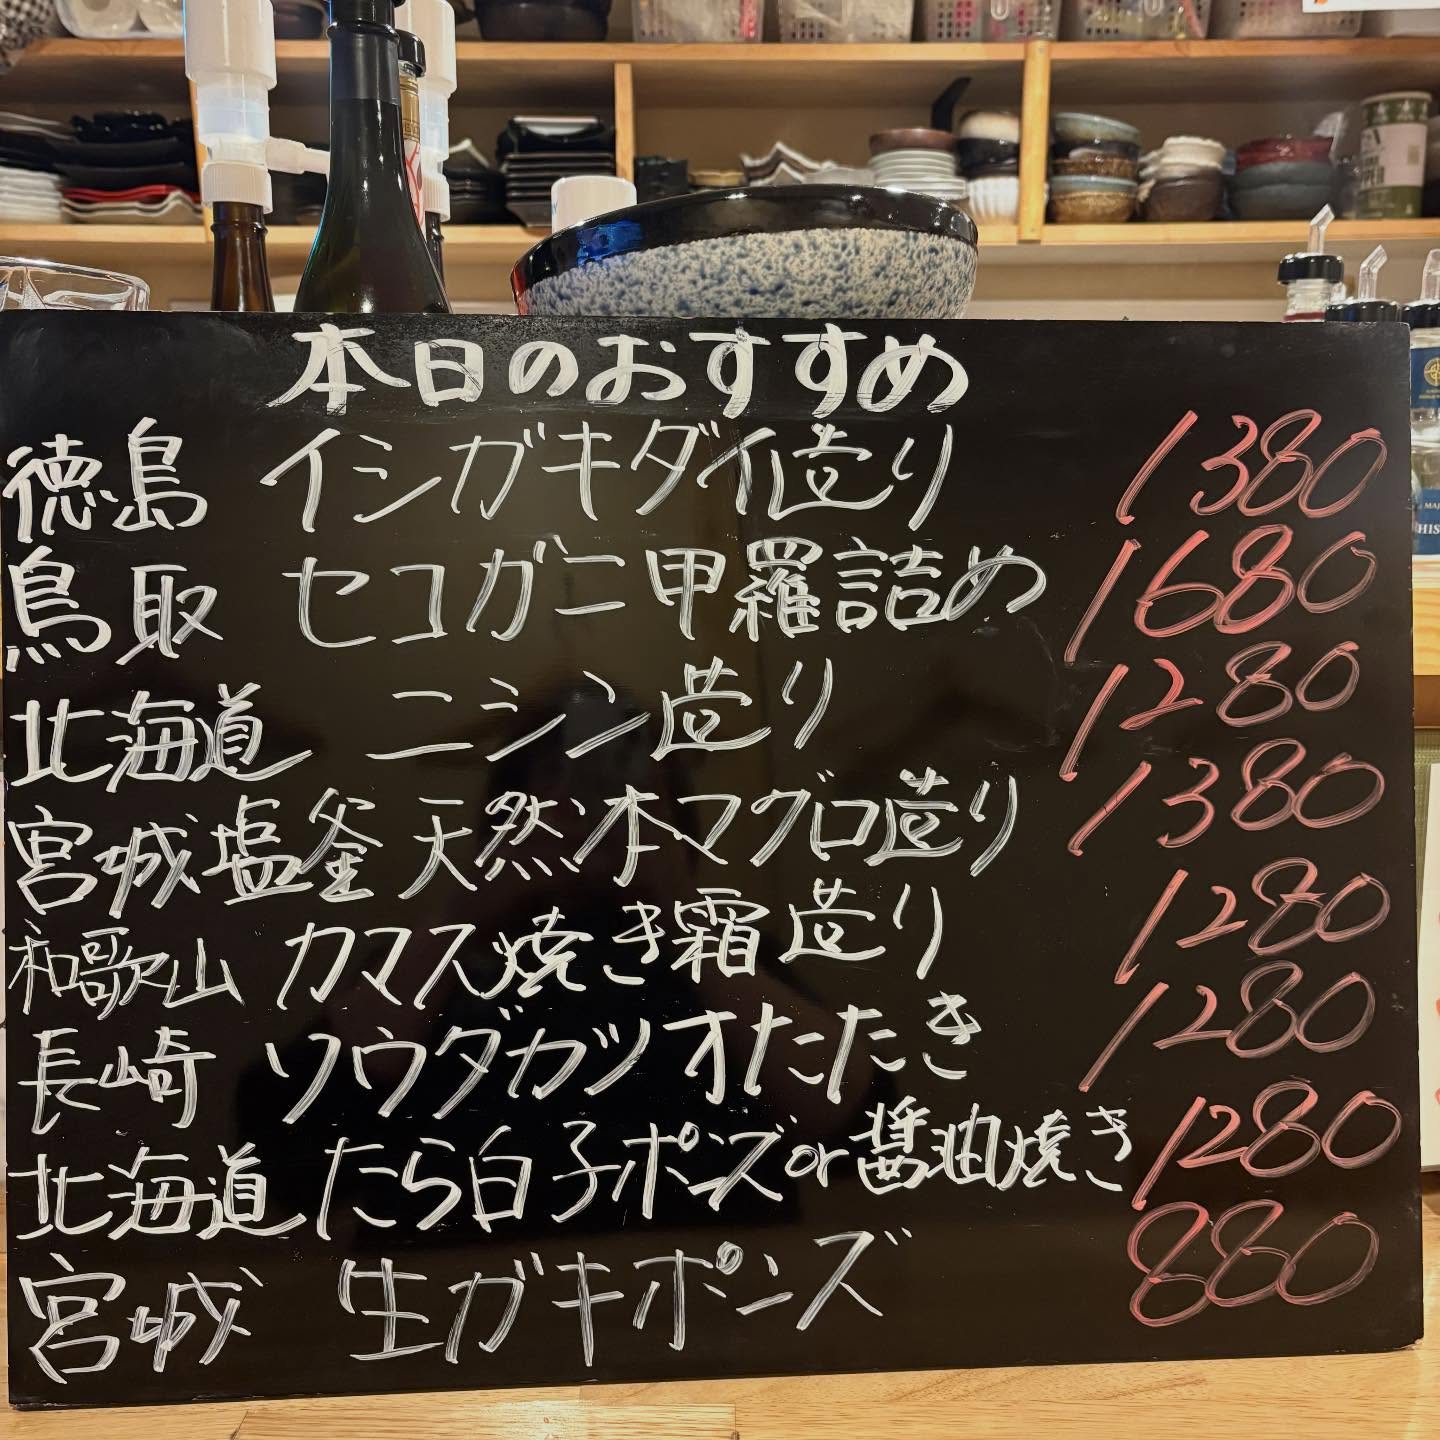 本日のおすすめ
徳島 イシガキダイ造り 1380
鳥取 セコガニ甲羅詰め 1680
北海道 ニシン造り 1280
宮城塩釜 天然本マグロ造り 1380
和歌山 カマス焼き霜造り 1280
長崎 ソウダガツオたたき 1280
北海道 たら白子ポンズor醤油焼き 1280
宮城 生ガキポンズ 880